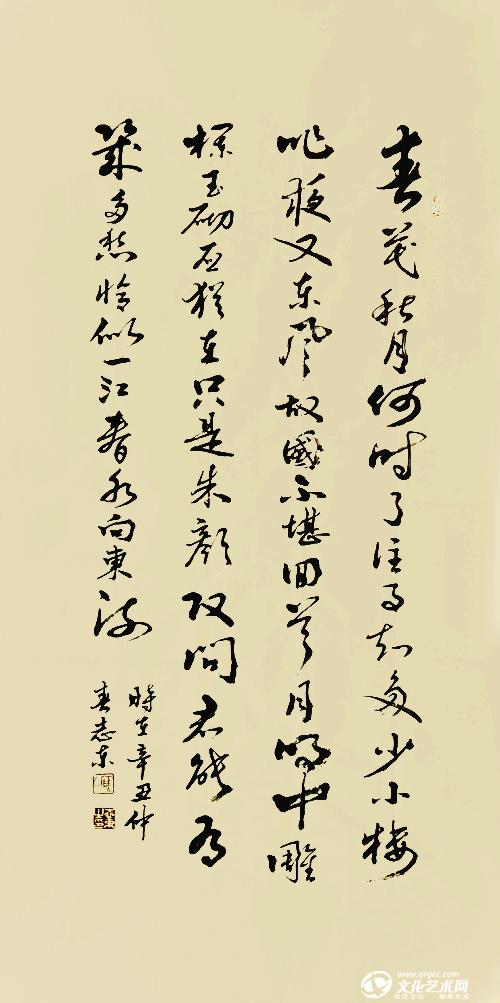 春花秋月何时了往事知多少小楼
昨夜又东風故國不堪回首月明中雕
栏玉砌应犹在只是朱颜改問君能有
幾多愁恰似一江春水向東流
時在辛丑仲
春志东
www.orgcc.com
文化艺术网